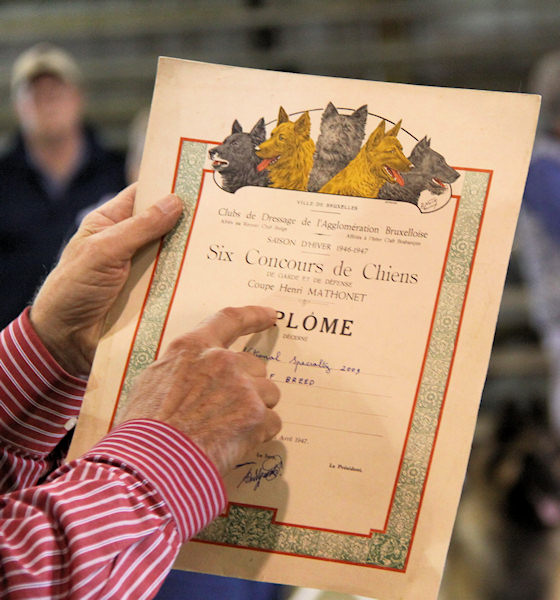 VILLE DE BRUXELLES
Clubs de Dressage de l'Agglomération Bruxelloise
Affiliés au Kennel Club Belge Affiliés à l'Inter Club Brabançon
SAISON D'HIVER 1946-1947
Six Concours de Chiens
DE GARDE ET DE DÉFENSE
Coupe Henri MATHONET
PLÔME
DÉCERNÉ
tional Specialty 2009
F BREED
Avril 1947.
Le Président.